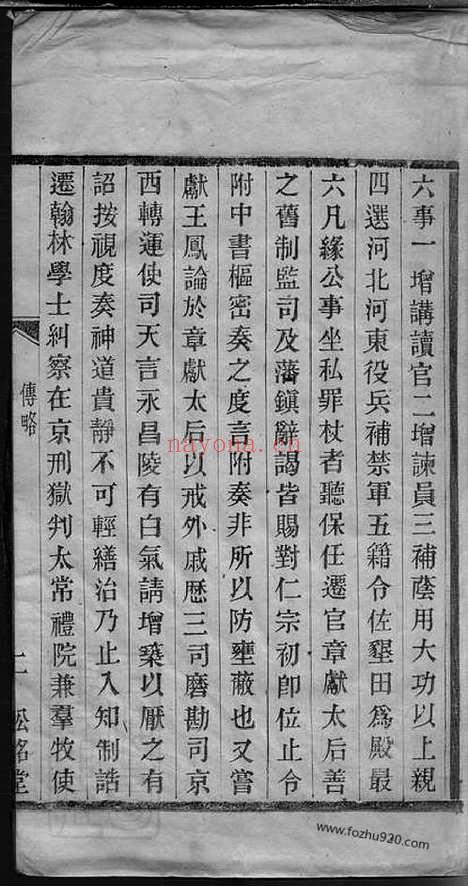 六事一增講讀官二增諫員三補蔭用大功以上親
四選河北河東役兵補禁軍五籍令佐墾田爲殿最
六凡緣公事坐私罪杖者聽保任遷官章獻太后善
之舊制監司及藩鎮辭謁皆賜對仁宗初卽位止令
附中書樞密奏之度言附奏非所以防壅蔽也又嘗
獻王鳳論於章獻太后以戒外戚歷三司磨勘司京
西轉運使司天言永昌陵有白氣請增築以厭之有
詔按視度奏神道貴靜不可輕繕治乃止入知制誥
遷翰林學士糾察在京刑獄判太常禮院兼羣牧使
傳略
二
松
堂
nayona.cn
www.fozhu920.com